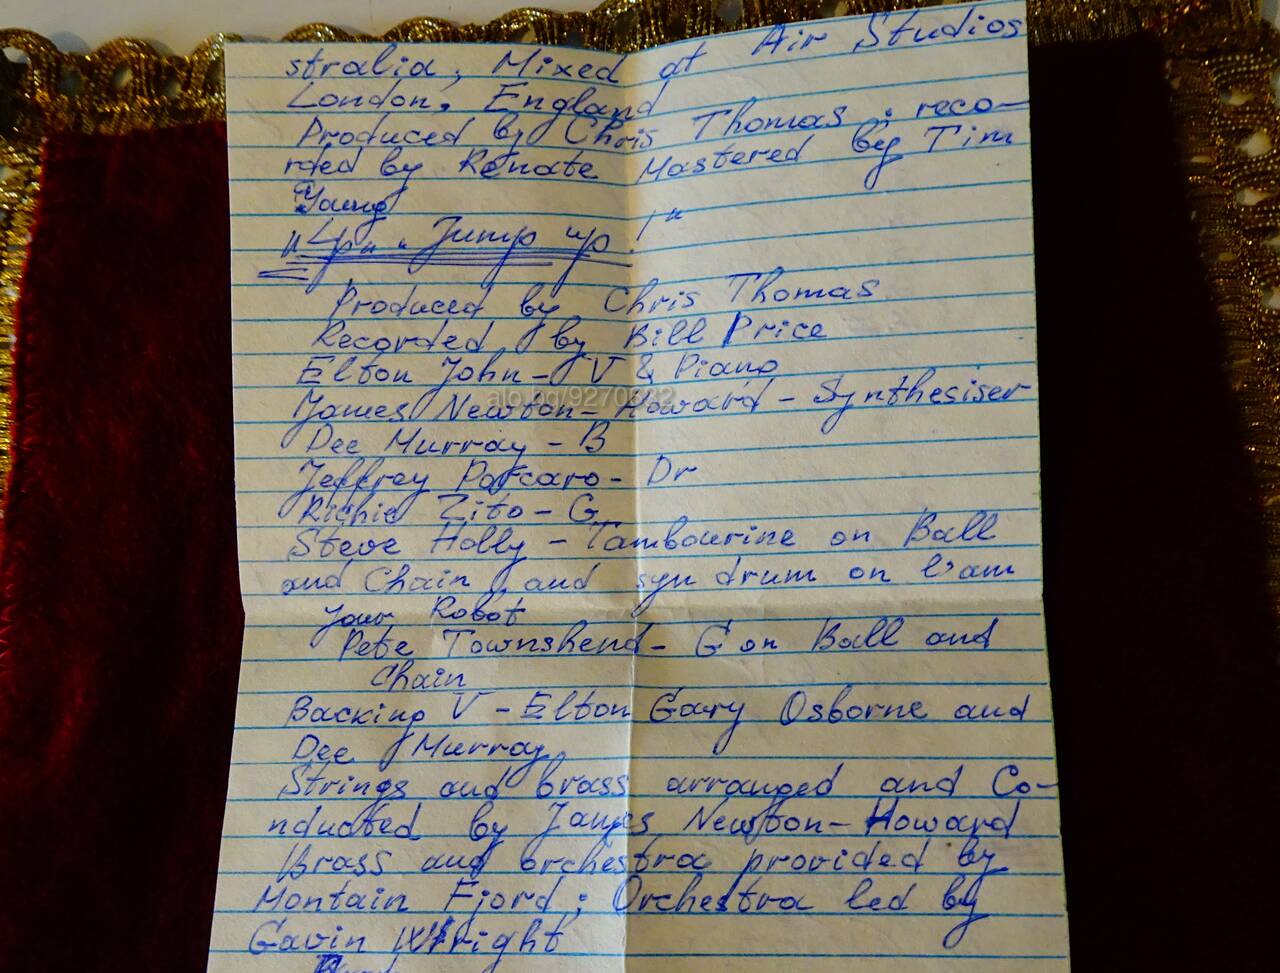 stralia, Mixed at Air Studios
London, England
Produced by Chris Thomas; reco-
rded by Renate Mastered by Tim
Young
"Lp" "Jump up!"
Produced by Chris Thomas
Recorded by Bill Price
Elton John - V & Piano
alo.bg/9270632
James Newton-Howard - Synthesiser
Dee Murray - B
Jeffrey Porcaro - Dr
Richie Zito - G
Steve Holly - Tambourine on Ball
and Chain, and syn drum on I'am
Your Robot
Pete Townshend - G on Ball and
Chain
Backing V - Elton Gary Osborne and
Dee Murray
Strings and brass arranged and Co-
nducted by James Newton-Howard
Brass and orchestra provided by
Montain Fjord; Orchestra led by
Gavin Wright